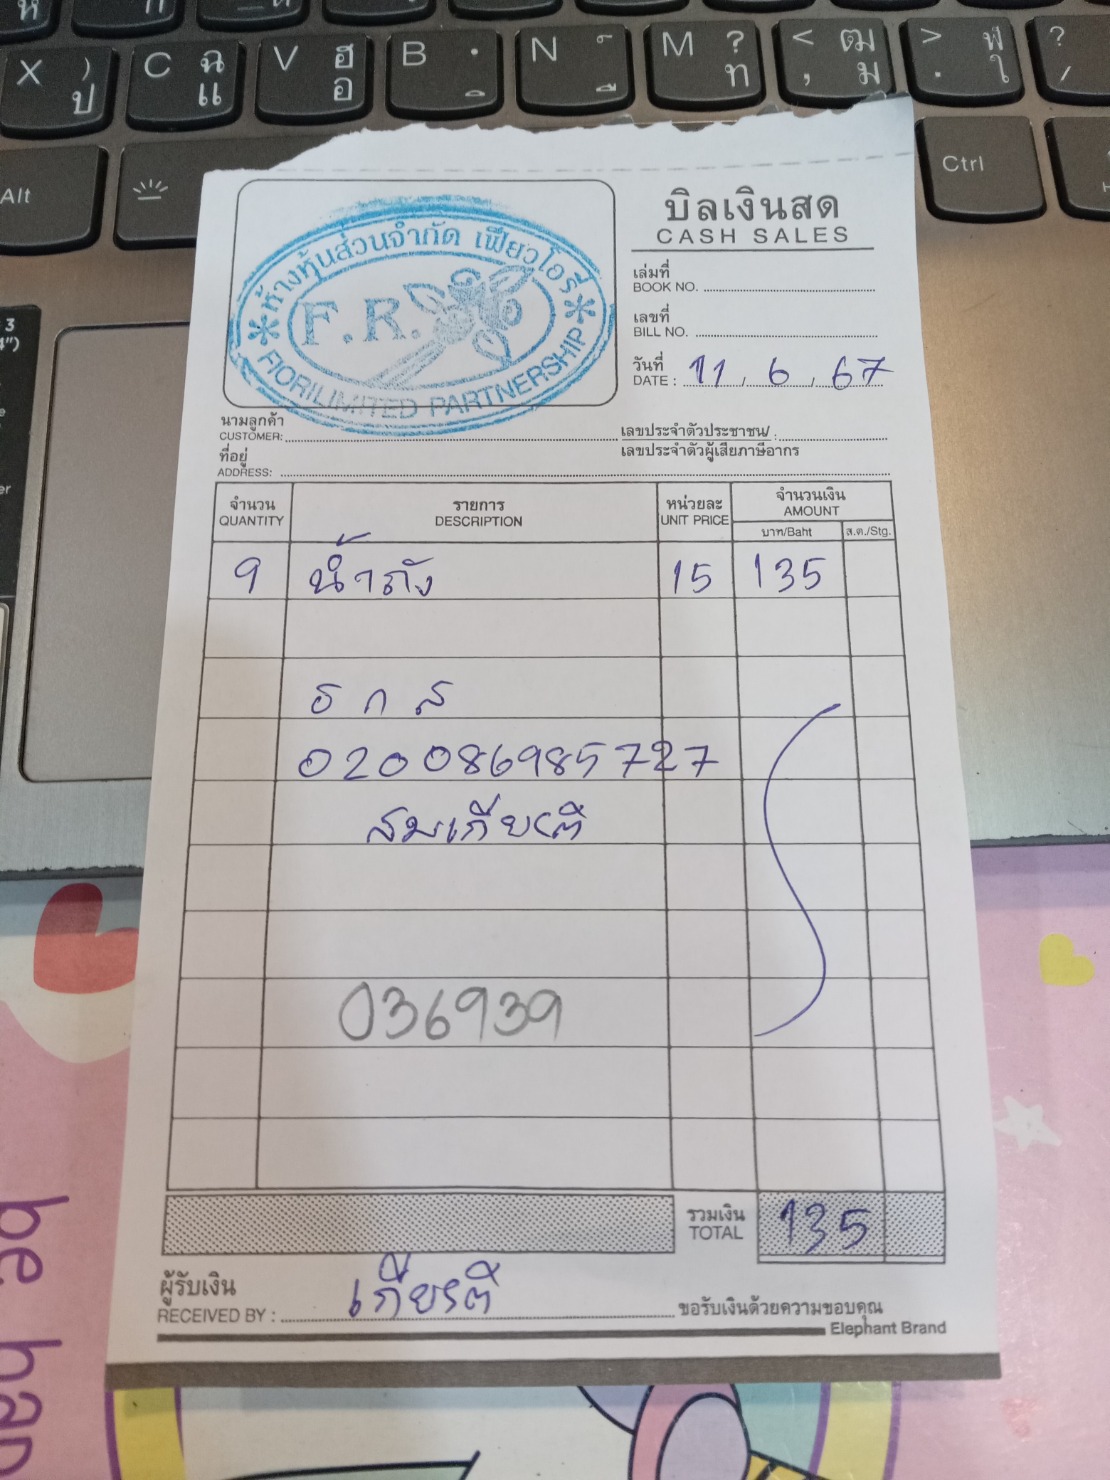 X ) ป
C ฉ แ
V ฮ อ
B
N
M ? ท
< ฒ , ม
> ฬ . ใ
? /
Alt
Ctrl
บิลเงินสด
CASH SALES
ห้างหุ้นส่วนจำกัด เฟียวโอรี่
F.R.
FIORI LIMITED PARTNERSHIP
เล่มที่
BOOK NO.
เลขที่
BILL NO.
วันที่
DATE : 11 / 6 / 67
นามลูกค้า
CUSTOMER:
เลขประจำตัวประชาชน/ :
เลขประจำตัวผู้เสียภาษีอากร
ที่อยู่
ADDRESS:
จำนวน รายการ หน่วยละ จำนวนเงิน
QUANTITY DESCRIPTION UNIT PRICE AMOUNT
บาท/Baht ส.ต./Stg.
9 น้ำถัง 15 135
ธ ก ส
020086985727
สมเกียรติ
036939
รวมเงิน
TOTAL 135
ผู้รับเงิน
RECEIVED BY : เกียรติ
ขอรับเงินด้วยความขอบคุณ
Elephant Brand
be